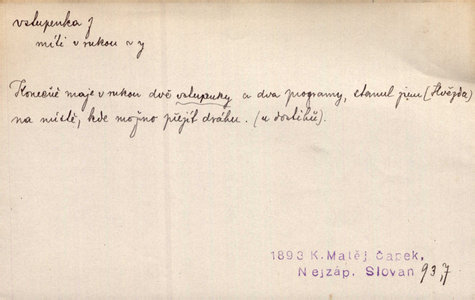 vstupenka f
míti v rukou ~ y
Konečně maje v rukou dvě vstupenky a dva programy, stanul jsem (Hvězda)
na místě, kde možno přejít dráhu. (u dostihů).
1893 K. Matěj Čapek,
Nejzáp. Slovan 93,7